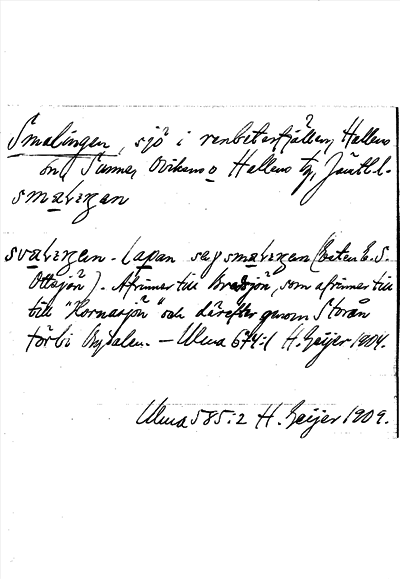 Smalingen, sjö i renbetesfjällen, Hallens
sn, Sunne, Ovikens o Hallens tg, Jämtl. l.
smaliŋan
svaliŋan. Lapan sag smaliŋan (Östen E. S.
Ottsjön). Afrinner till Bredsjön, som afrinner till
till "Hornasjön" och därefter genom Storån
förbi Bydalen. – Ulma 574:1 H. Geijer 1904.
Ulma 585:2 H. Geijer 1909.